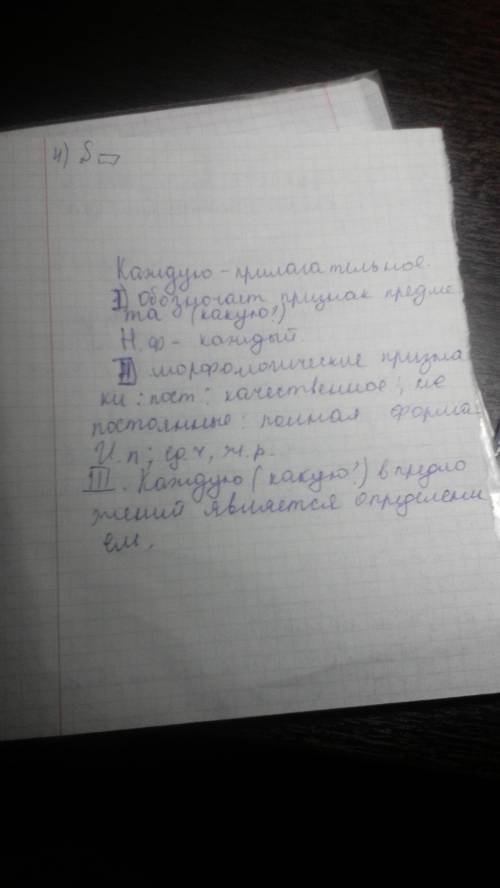 4)
Каждую - прилагательное.
I) Обозночает признак предме
та (какую?)
Н.ф - каждый.
II) морфологические призна
ки: пост: качественное; не
постоянные: полная форма
И.п; ед.ч, ж.р.
III. Каждую (какую?) в предло
жений является определени
ем.